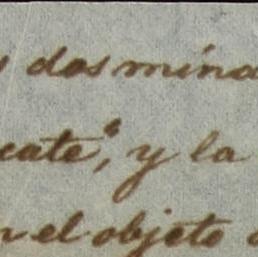 dos mina
cate", y la
el objeto